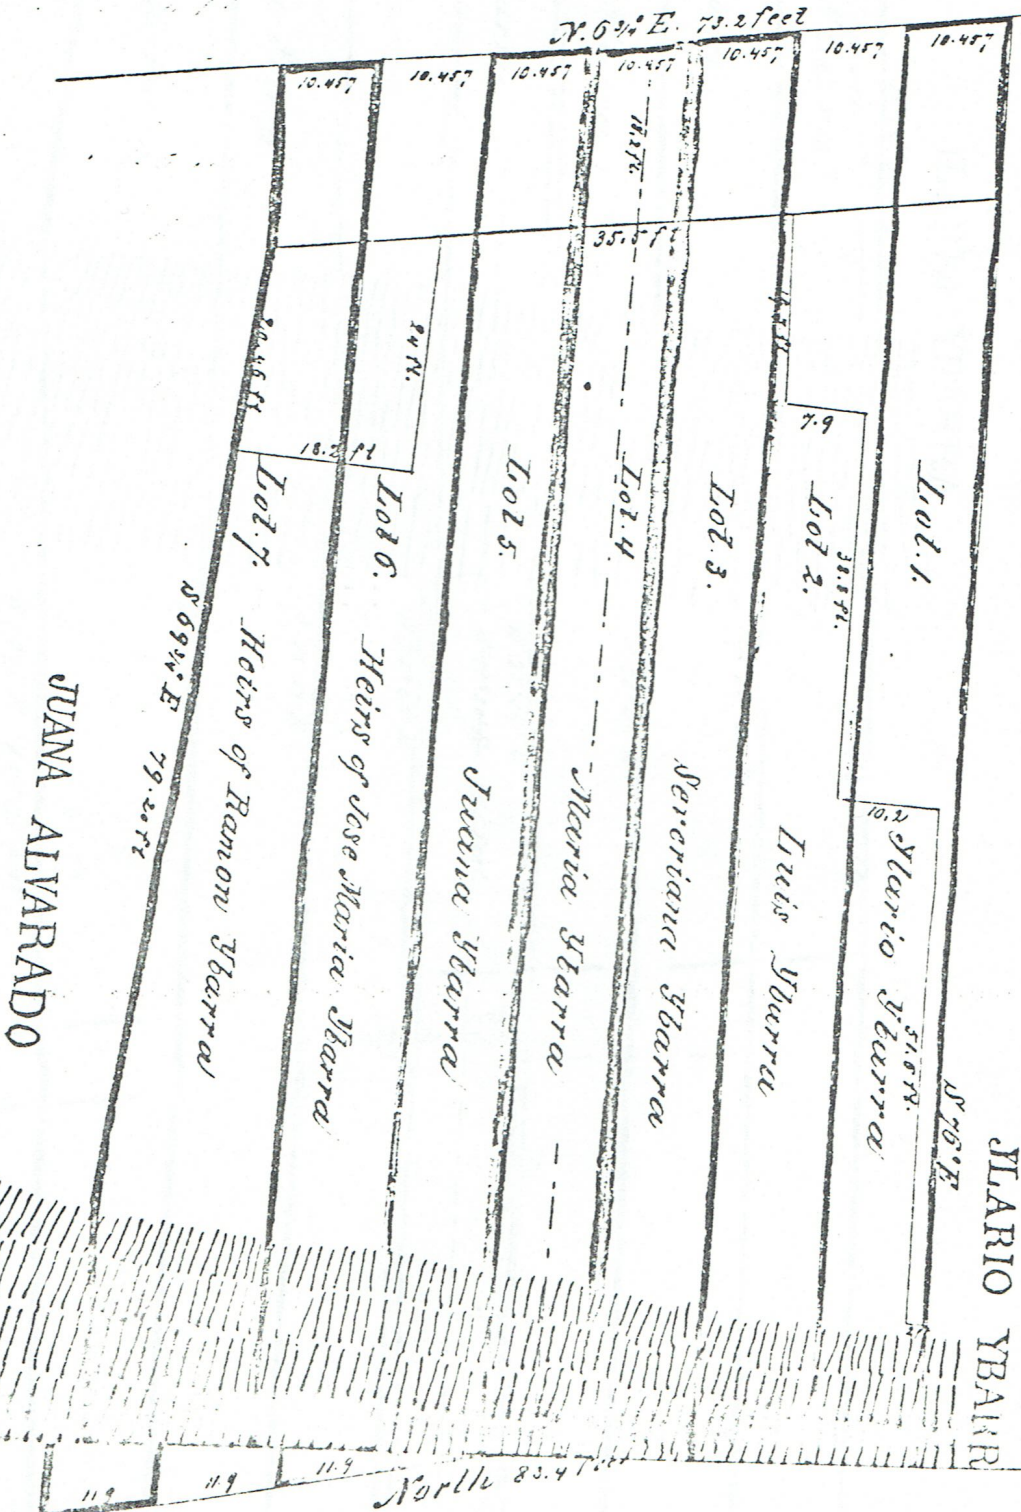 N. 6¾° E. 73.2 feet
10.457
10.457
10.457
10.457
10.457
10.457
10.457
18.2 ft.
35.5 ft
24 ft.
20.46 ft
18.2 ft
7.9
38.8 ft.
10.2
51.6 ft.
S 76° E
S 69¾° E 79.20 ft
Lot. 1.
Mario Ybarra
Lot 2.
Luis Ybarra
Lot. 3.
Sereriana Ybarra
Lot. 4.
Maria Ybarra
Lot 5.
Juana Ybarra
Lot 6. Heirs of Jose Maria Ybarra
Lot. 7. Heirs of Ramon Ybarra
JUANA ALVARADO
JLARIO YBARR
11.9
11.9
11.9
North 83.4